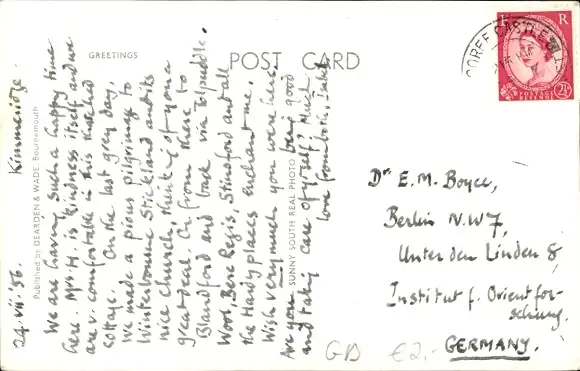 GREETINGS
POST CARD
Published by DEARDEN & WADE, Bournemouth
SUNNY SOUTH REAL PHOTO
24.vii.'56. Kimmeridge.
We are having such a happy time
here. Mrs H. is kindness itself and we
are v. comfortable in this thatched
cottage. On the last grey day,
we made a pious pilgrimage to
Winterbourne Stickland and its
nice church, thinking of you a
great deal. On from there to
Blandford and back via Tolpuddle.
Wool, Bere Regis, Stinsford and all
the Hardy places enchant me.
Wish very much you were here.
Are you being good
and taking care of yourself? Much
love from both,
CORFE CASTLE
R
POSTAGE REVENUE
2½
Dr E. M. Boyce,
Berlin N.W7,
Unter den Linden 8,
Institut f. Orientfor-
schung.
GERMANY.
GB €2.-